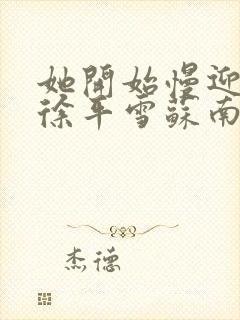 她開始慢迎
徐平雪蘇南
杰德